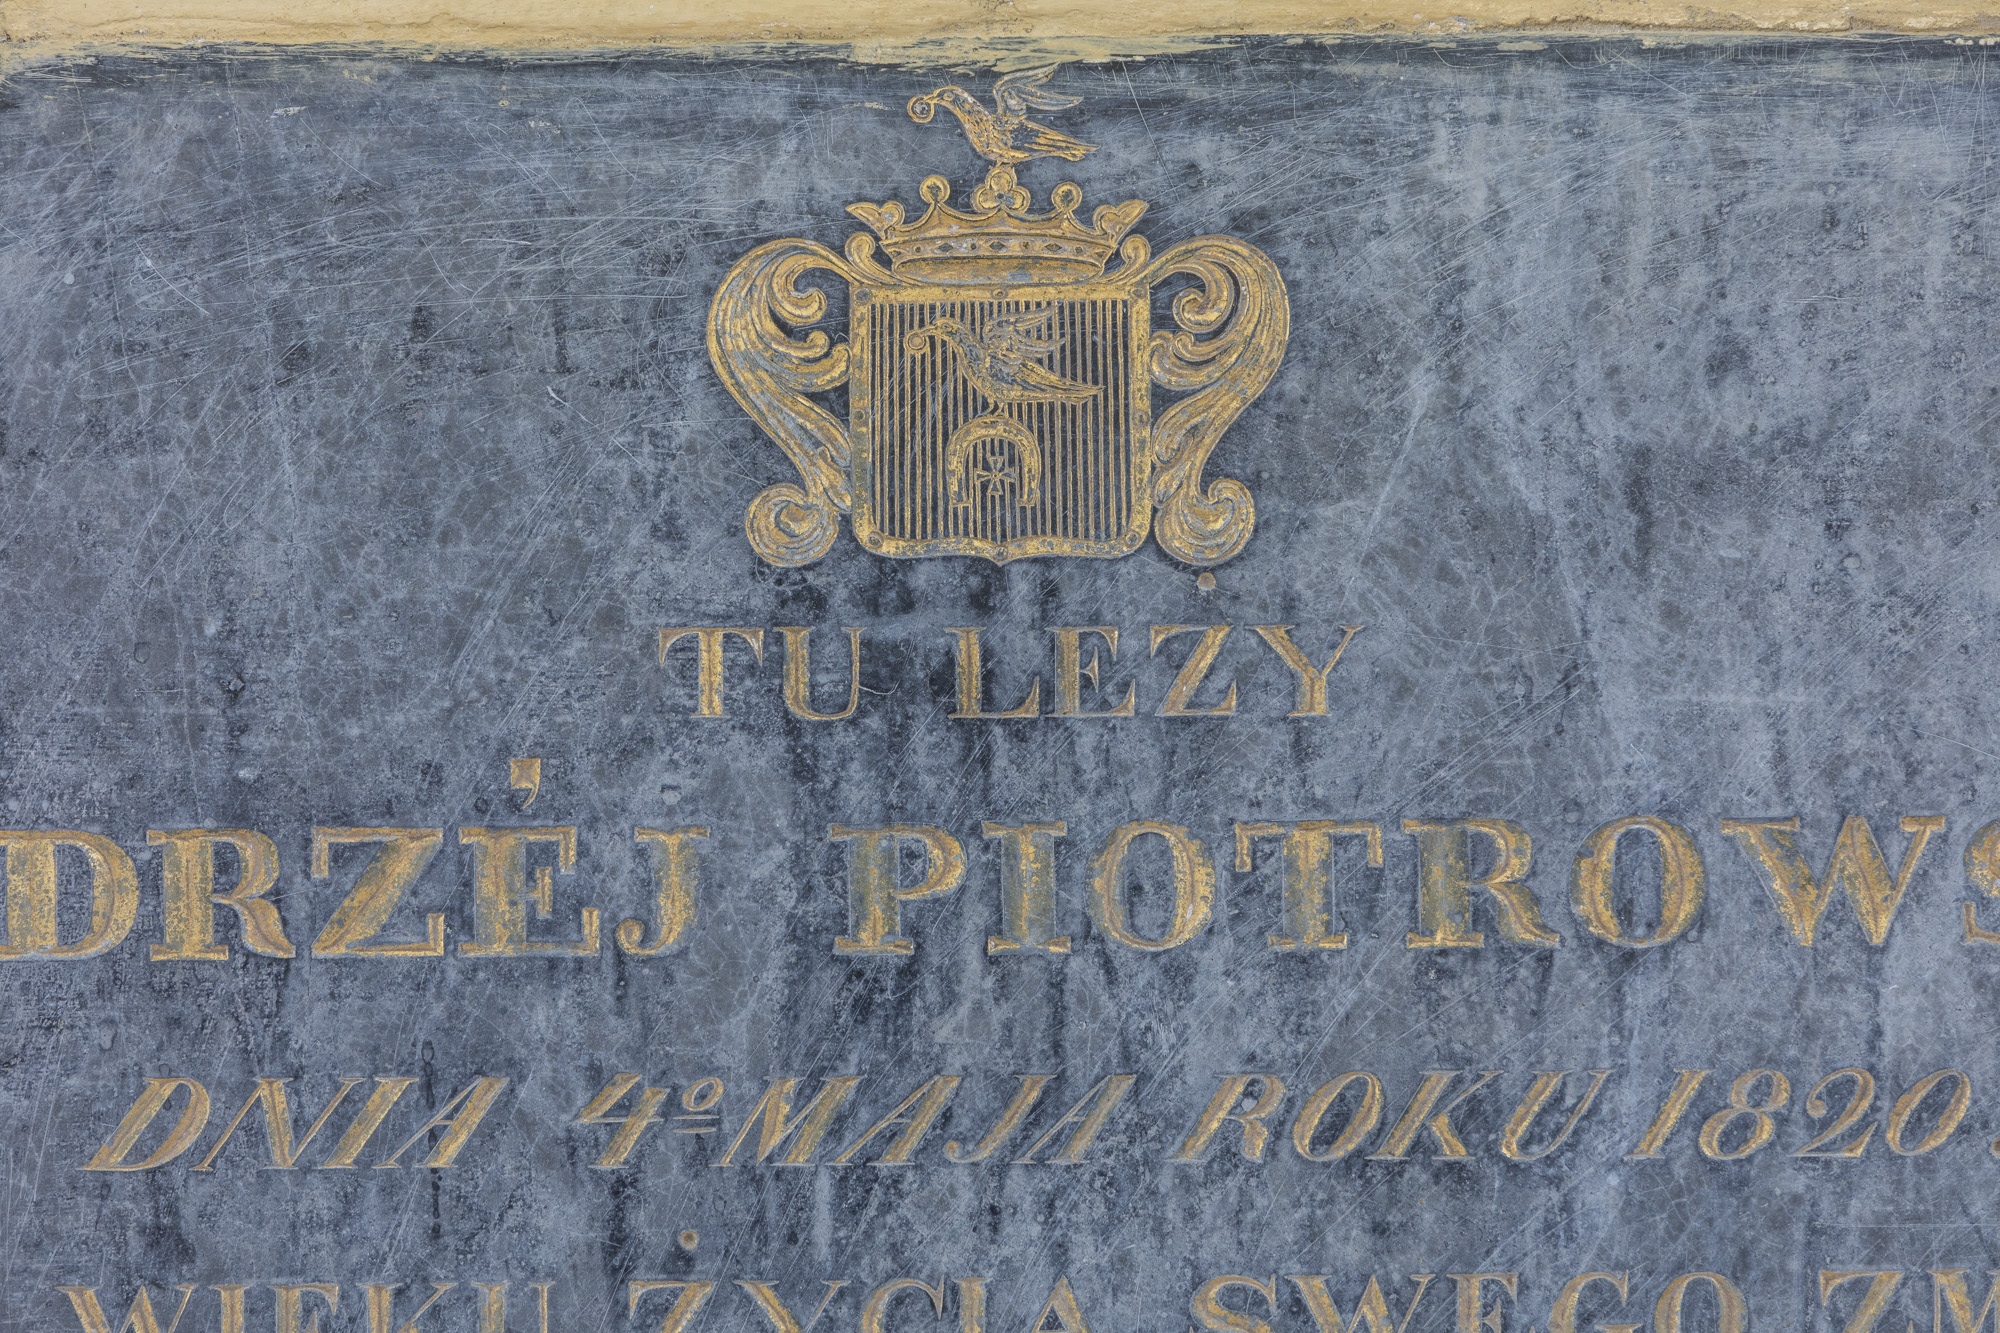 TU LEZY
DRZÉJ PIOTROWS
DNIA 4º MAJA ROKU 1820.
WIEKU ZYCIA SWEGO ZM